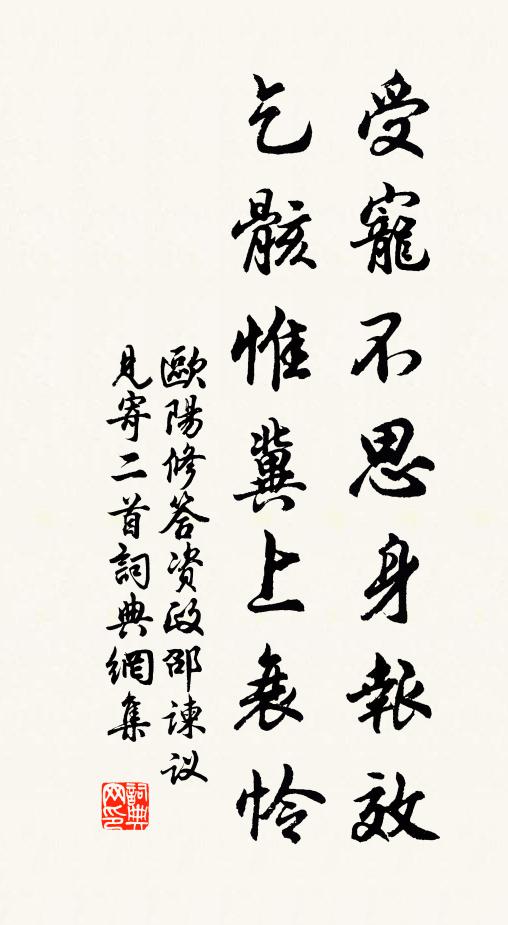 受寵不思身報效
乞骸惟冀上哀憐
歐陽修答资政邵諫议
見寄二首詞典網集
詞典网印